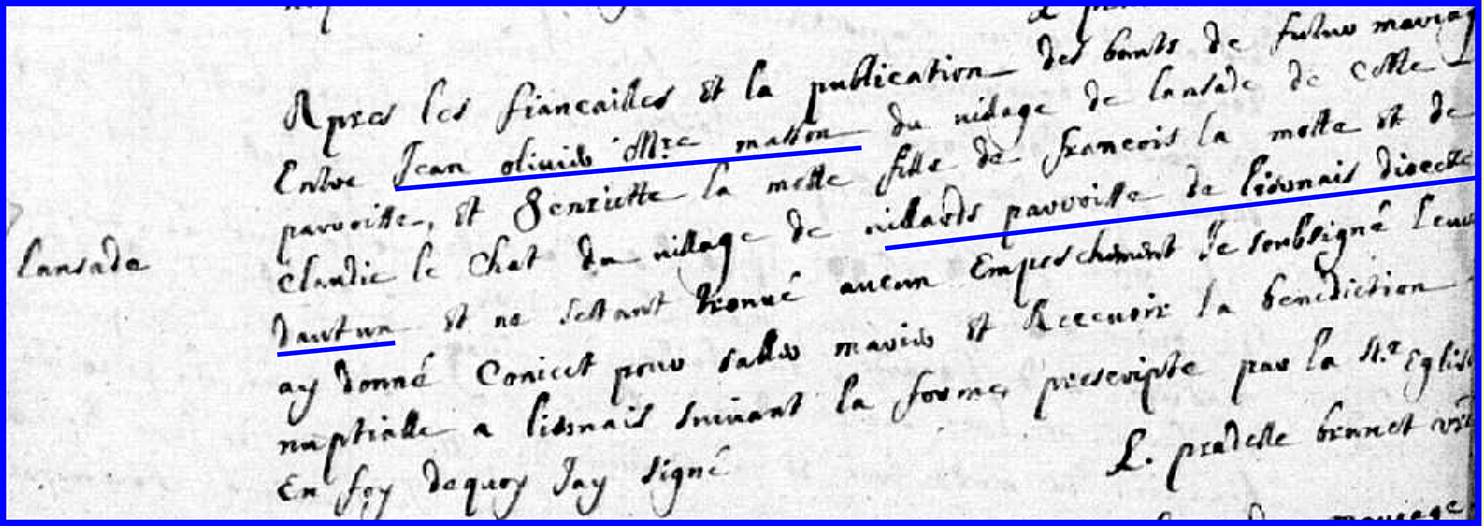 Apres les fiancailles et la publication des bants de futur mariag
Entre Jean olivier Mre masson du village de lansade de cette
parroisse, et henriette la motte fille de francois la motte et de
lansade
claudie le chat du village de villards parroisse de liernais diocese
dautun et ne sestant trouvé aucun Empeschement Je soubsigné leur
ay donné Conict pour saller marier et Recevoir la benediction
nuptialle a liernais suivant la forme prescripte par la Ste Eglise
En foy dequoy Jay signé
L. pradelle brunet